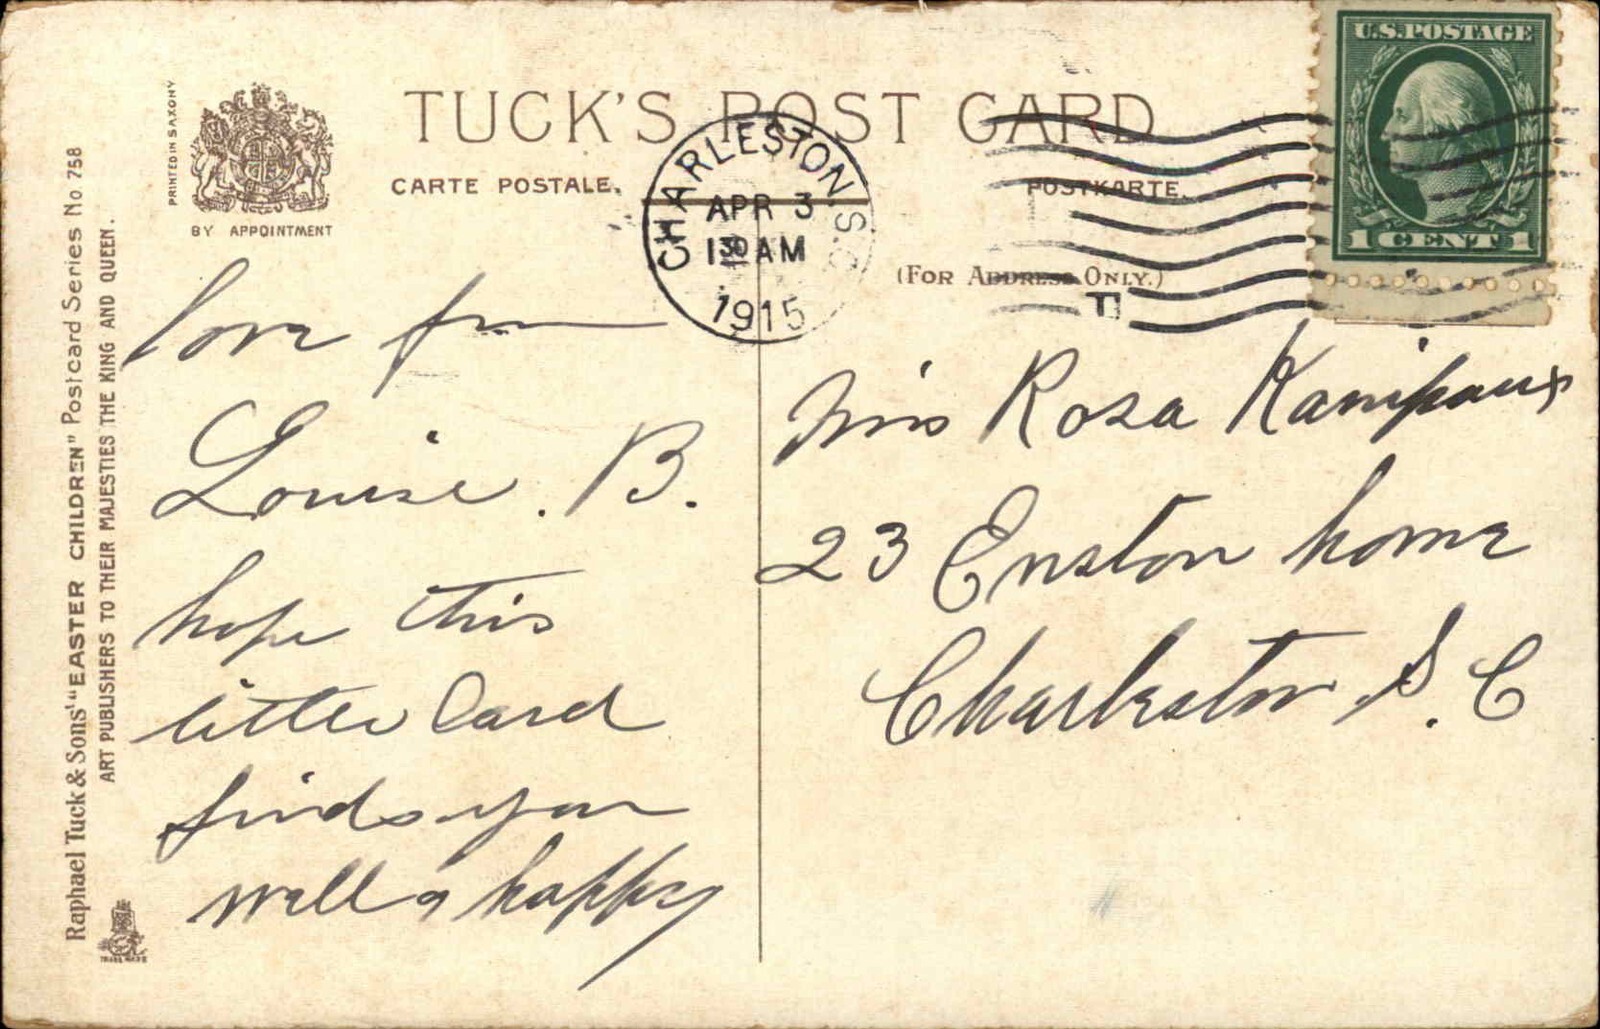 TUCK'S POST CARD
CARTE POSTALE.
POSTKARTE.
(FOR ADDRESS ONLY.)
PRINTED IN SAXONY
BY APPOINTMENT
Raphael Tuck & Sons' "EASTER CHILDREN" Postcard Series No 758
ART PUBLISHERS TO THEIR MAJESTIES THE KING AND QUEEN.
TRADE MARK
CHARLESTON, S.C.
APR 3
1 30 AM
1915
U.S. POSTAGE
1 CENT 1
love from
Louise. B.
hope this
little Card
finds you
well & happy
Miss Rosa
23 Enston home
Charleston S. C